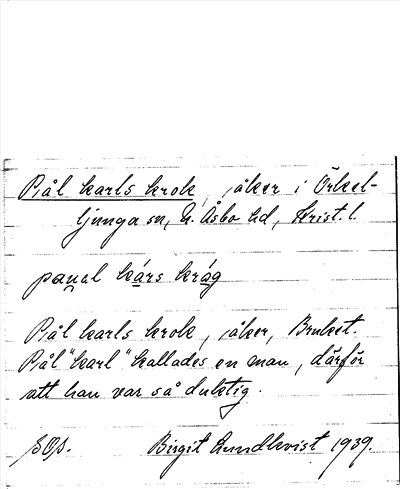 Pål karls krok, åker i Örkel-
ljunga sn, N. Åsbo hd, Krist. l.
paual kárs kråg
Pål karls krok, åker, Bruket.
Pål "karl" kallades en man, därför
att han var så duktig.
Birgit Lundkvist 1939.